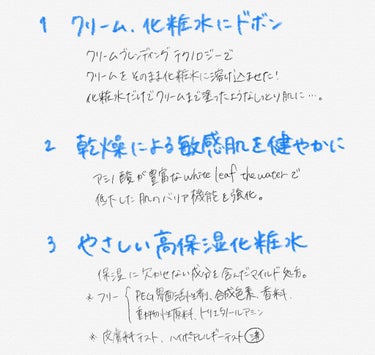 1 クリーム、化粧水にドボン
クリームブレンディングテクノロジーで
クリームをそのまま化粧水に溶け込ませた!
化粧水だけでクリームまで塗ったようなしっとり肌に…。
2 乾燥による敏感肌を健やかに
アミノ酸が豊富なwhite leaf the waterで
低下した肌のバリア機能を強化。
3 やさしい高保湿化粧水
保湿に欠かせない成分を含んだマイルド処方。
*フリー PEG界面活性剤、合成色素、香料、
動物性原料、トリエタノールアミン
*皮膚科テスト、ハイポアレルギーテスト 済